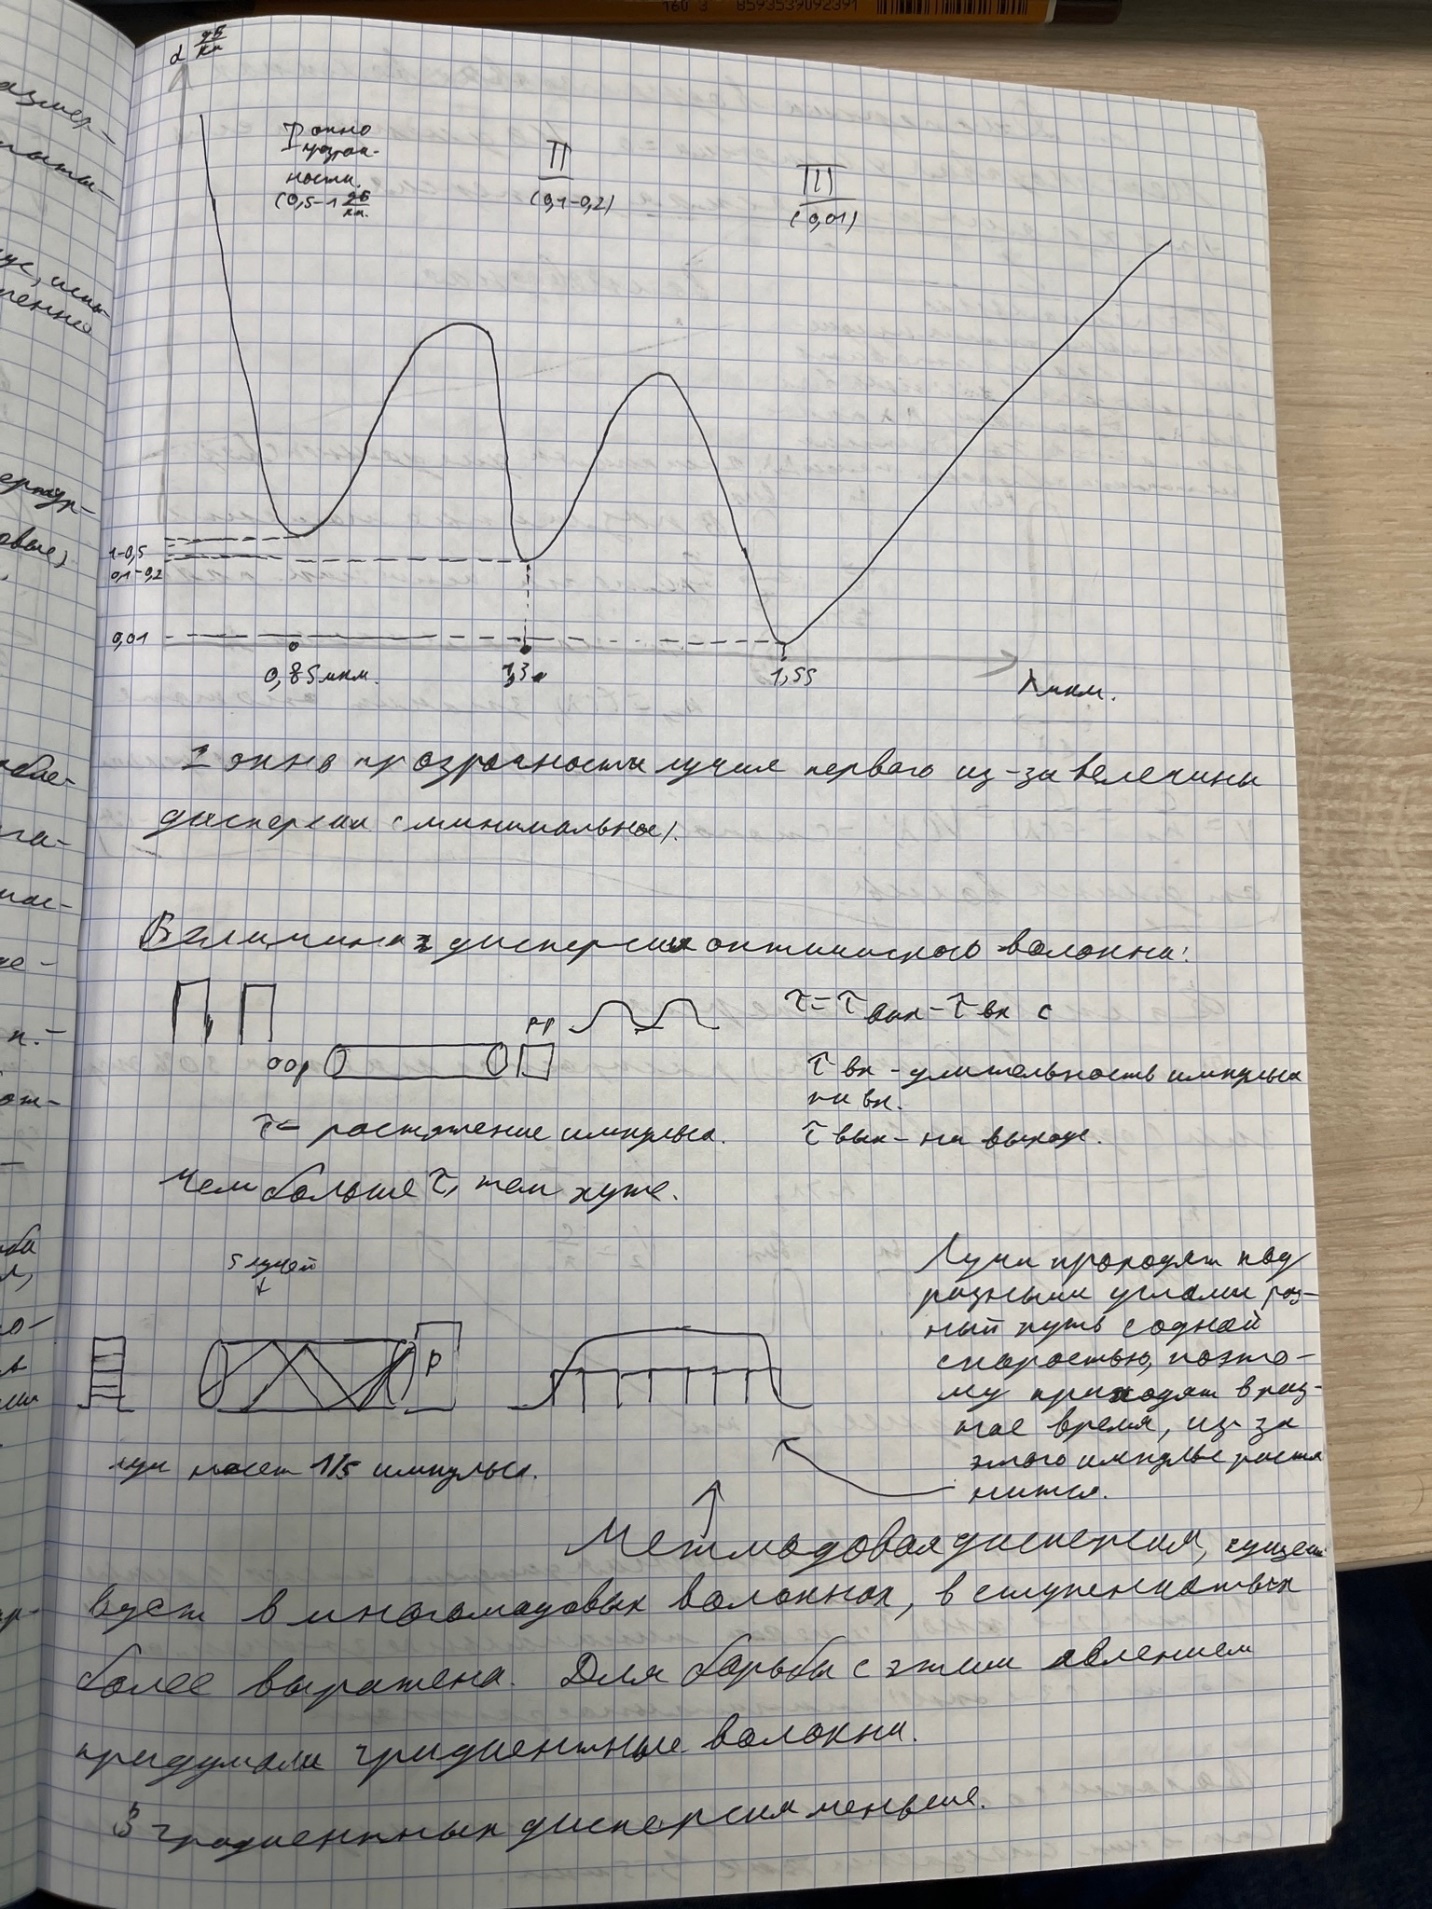 160 3 8593539092391
α дб/км
I окно
прозрач-
ности.
(0,5-1 дб/км.
II
(0,1-0,2)
III
(0,01)
1-0,5
0,1-0,2
0,01
0,85 мкм.
1,3
1,55
λ мкм.
окно прозрачности лучше первого из-за велечины
дисперсии (минимальное).
Величина дисперсии оптического волокна:
τ = τ вых - τ вх с
рр
оор
τ вх - длительность импульса
на вх.
τ - растяжение импульса.
τ вых - на выходе.
Чем больше τ, тем хуже.
5 лучей
Р
луч несет 1/5 импульса.
Лучи проходят под
разными углами раз-
ный путь с одной
скоростью, поэто-
му приходят в раз-
ное время, из-за
этого импульс растя
нится.
Межмодовая дисперсия, сущест
вует в многомодовых волокнах, в ступенчатых
более выражена. Для борьбы с этим явлением
придумали градиентные волокна.
В градиентных дисперсия меньше.